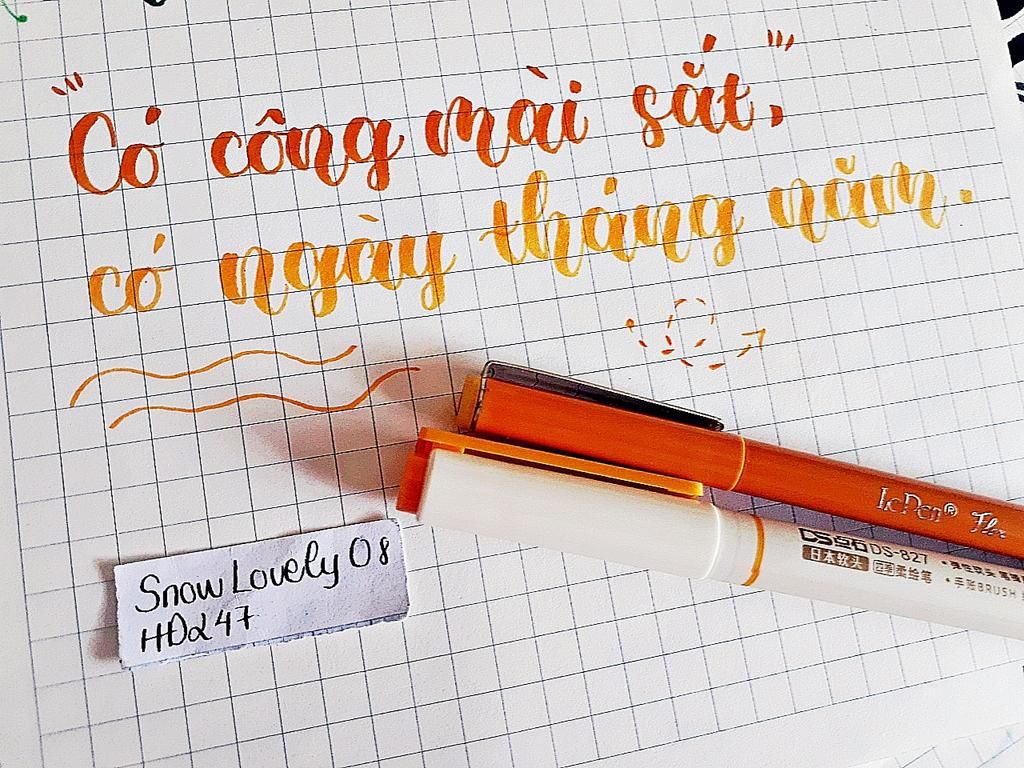 "Có công mài sắt,"
có ngày tháng năm.
LePen® Flex
DS点石 DS-827
日本软头 四季柔绘笔
手账BRUSH
Snow Lovely 08
HD247